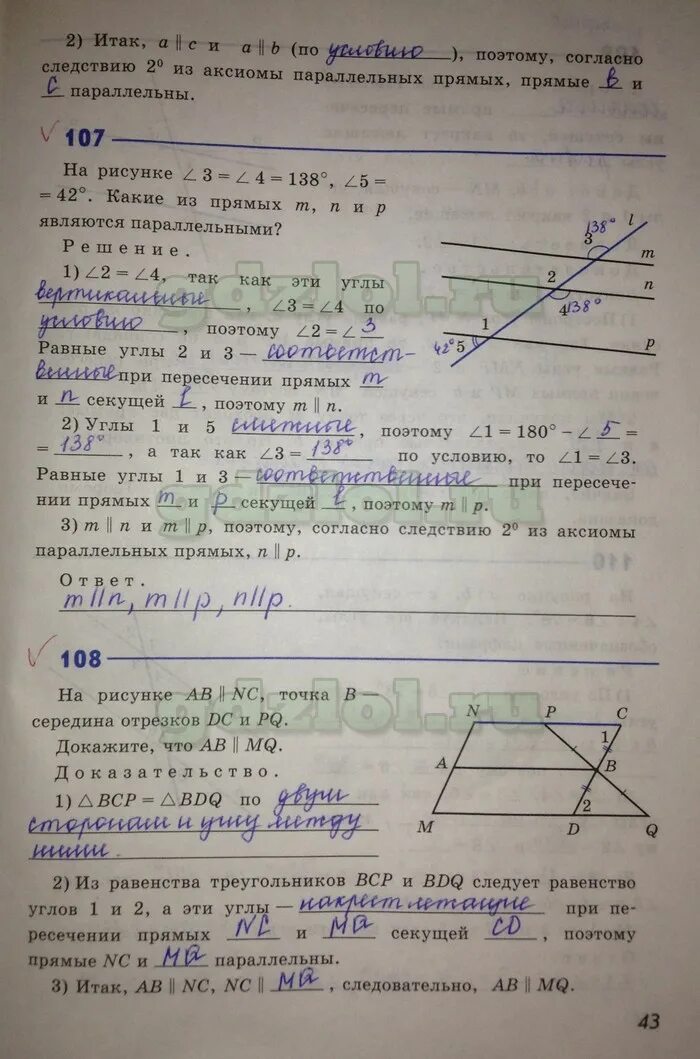 2) Итак, a ∥ c и a ∥ b (по условию), поэтому, согласно
следствию 2⁰ из аксиомы параллельных прямых, прямые в и
с параллельны.
107
На рисунке ∠ 3 = ∠ 4 = 138°, ∠5 =
= 42°. Какие из прямых m, n и p
являются параллельными?
Решение.
1) ∠2 = ∠4, так как эти углы
вертикальные, ∠3 = ∠4 по
условию, поэтому ∠2 = ∠ 3
Равные углы 2 и 3 — соответст-
венные при пересечении прямых m
и n секущей l, поэтому m ∥ n.
2) Углы 1 и 5 смежные, поэтому ∠1 = 180° – ∠ 5 =
= 138°, а так как ∠3 = 138° по условию, то ∠1 = ∠3.
Равные углы 1 и 3 — соответственные при пересече-
нии прямых m и p секущей l, поэтому m ∥ p.
3) m ∥ n и m ∥ p, поэтому, согласно следствию 2⁰ из аксиомы
параллельных прямых, n ∥ p.
Ответ.
m∥n, m∥p, n∥p.
138° l
3 m
2 n
4 138°
1
42° 5 p
gdzlol.ru
gdzlol.ru
108
На рисунке AB ∥ NC, точка B —
середина отрезков DC и PQ.
Докажите, что AB ∥ MQ.
Доказательство.
1) △BCP = △BDQ по двум
сторонам и углу между
ними.
2) Из равенства треугольников BCP и BDQ следует равенство
углов 1 и 2, а эти углы — накрест лежащие при пе-
ресечении прямых NC и MQ секущей CD, поэтому
прямые NC и MQ параллельны.
3) Итак, AB ∥ NC, NC ∥ MQ, следовательно, AB ∥ MQ.
N P C
1
A B
2
M D Q
gdzlol.ru
43